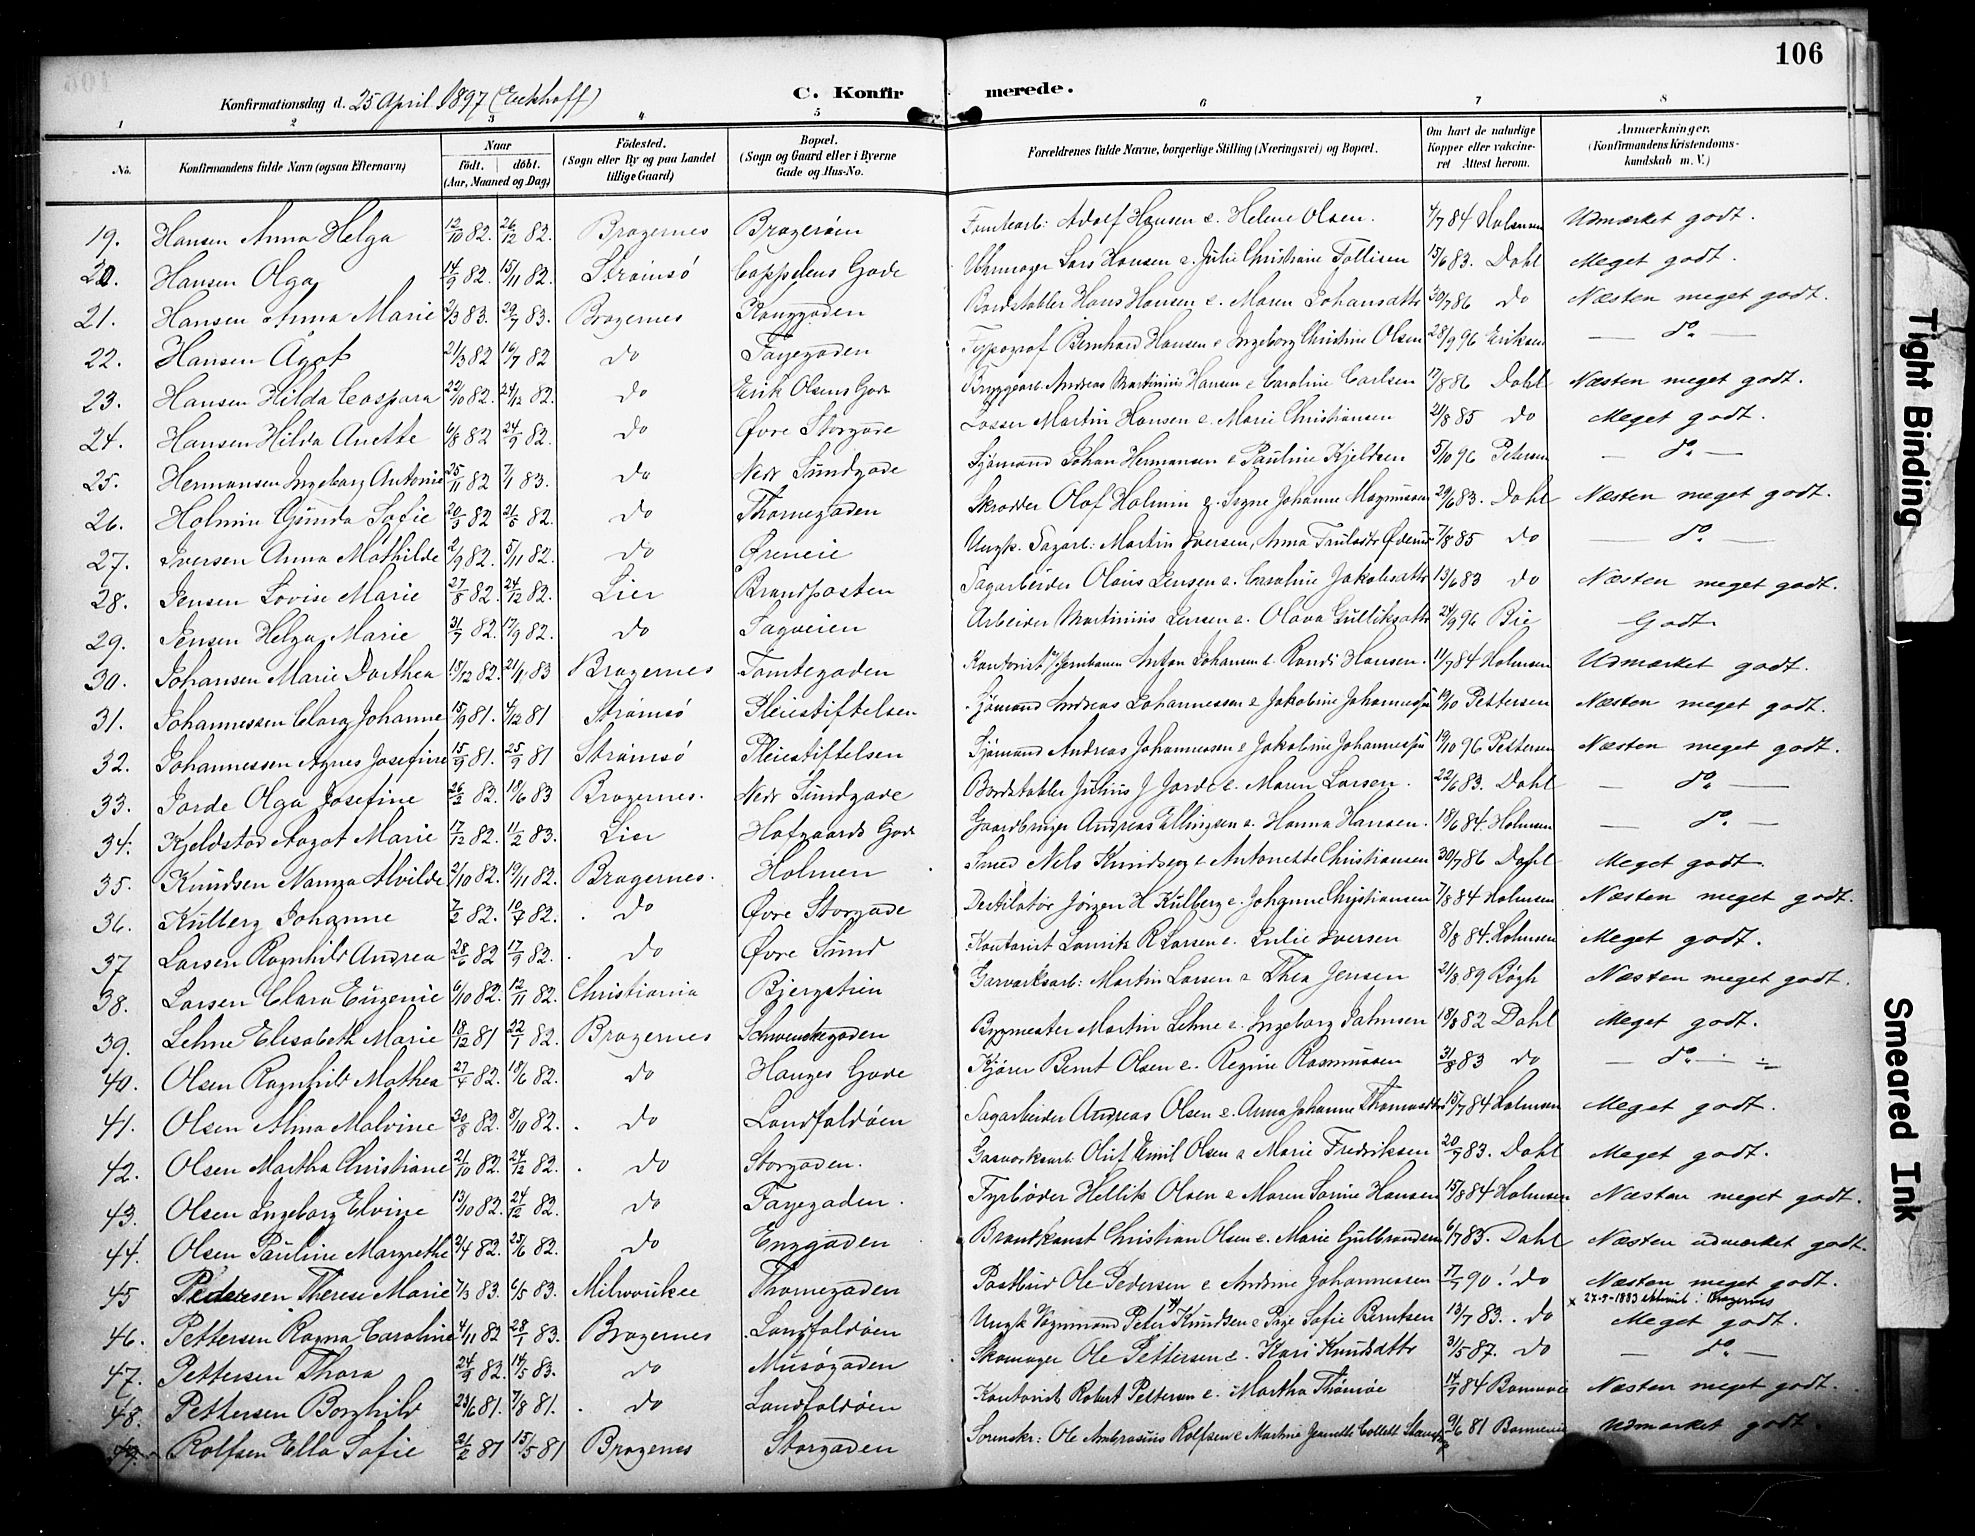 106
Konfirmationsdag d. 25 April 1897 (Eckhoff)
C. Konfirmerede.
1 2 3 4 5 6 7 8
No. Konfirmandens fulde Navn (ogsaa Efternavn) Naar født. døbt. (Aar, Maaned og Dag) Fødested. (Sogn eller By og paa Landet tillige Gaard) Bopæl. (Sogn og Gaard eller i Byerne Gade og Hus-No. Forældrenes fulde Navne, borgerlige Stilling (Næringsvei) og Bopæl. Om havt de naturlige Kopper eller vaccineret Attest herom. Anmærkninger. (Konfirmandens Kristendomskundskab m. V.)
19. Hansen Anna Helga 12/10 82. 26/12 82. Bragernes Bragerøen Tomtearb. Adolf Hansen e. Helene Olsen. 4/7 84 Holmsen Udmærket godt.
20. Hansen Olga 14/9 82. 15/11 82. Strømsø Cappelens Gade Uhrmager Lars Hansen e. Julie Christiane Tollisen 15/6 83. Dahl Meget godt.
21. Hansen Anna Marie 2/3 83. 29/7 83. Bragernes Konggaden Bordstabler Hans Hansen e. Maren Johansdttr 30/7 86 do Næsten meget godt.
22. Hansen Ågot 21/3 82 16/7 82 do Fayegaden Typograf Bernhard Hansen e Ingeborg Christine Olsen 28/9 96 Eriksen — do —
23. Hansen Hilda Caspara 22/10 82. 24/12 82. do Erik Olsens Gade Bryggearb. Andreas Martinius Hansen e Caroline Carlsen 17/8 86 Dahl Næsten meget godt.
24. Hansen Hilda Anette 6/8 82 24/9 82. do Øvre Storgade Losser Martin Hansen e. Marie Christiansen 21/8 85 do Meget godt.
25. Hermansen Ingeborg Antonie 25/11 82 7/1 83. do Nedr Sundgade Sjømand Johan Hermansen e Pauline Kjeldsen 5/10 96 Petersen — do —
26. Holmin Gunda Sofie 20/3 82 21/5 82. do Thornegaden Skrædder Olaf Holmin e. Signe Johanne Magnussen 29/6 83. Dahl Næsten meget godt.
27. Iversen Anna Mathilde 2/9 82. 5/11 82. do Øreneie Ungk. Sagarb: Martin Iversen, Anna Trulsdtr 7/8 85 do — do —
28. Jensen Lovise Marie 27/8 82. 24/12 82. Lier Brandposten Sagarbeider Olaus Jensen e. Caroline Jakobsdttr 13/6 83 do Næsten meget godt.
29. Jensen Helga Marie 31/7 82. 17/9 82. do Sagveien Arbeider Martinius Jensen e. Olava Gulliksdttr 24/9 96 Bie Godt
30. Johansen Marie Dorthea 18/12 82. 21/1 83 Bragernes Tomtegaden Kontorist v/ Jernbanen Anton Johansen e. Randi Hansen. 11/7 84 Holmsen Udmærket godt.
31. Johannessen Clara Johanne 15/9 81. 4/12 81 Strømsø Pleiestiftelsen Sjømand Andreas Johannessen e Jakobine Johannessen 19/10 Pettersen Næsten meget godt.
32. Johannessen Agnes Josefine 15/9 81. 25/9 81 Strømsø Pleiestiftelsen Sjømand Andreas Johannessen e Jakobine Johannessen 19/10 96 Pettersen Næsten meget godt.
33. Jorde Olga Josefine 26/2 82. 18/6 83 Bragernes. Nedr Sundgade Bordstabler Julius J Jorde e. Maren Larsen. 22/6 83. Dahl — do —
34. Kjeldstad Aagot Marie 17/12 82. 11/2 83. Lier Hofgaards Gade Gaardbruger Andreas Ellingsen e. Hanna Hansen. 18/6 84. Holmsen — do —
35. Knudsen Nanna Alvilde 2/10 82. 19/11 82. Bragernes. Holmen Smed Nels Knudsen e Antonette Christiansen 30/7 86 Dahl Meget godt
36. Kulberg Johanne 7/2 82. 10/7 82. do Øvre Storgade Destilatør Jørgen H Kulberg e. Johanne Christiansen 7/8 84 Holmsen Næsten meget godt.
37 Larsen Ragnhild Andrea 28/6 82 17/9 82. do Øvre Sund Kontorist Laurits R Larsen e. Julie Iversen 8/8 84. Holmsen Meget godt.
38. Larsen Clara Eugenie 6/10 82. 12/11 82. Christiania Bjergstien Garværksarb: Martin Larsen e Thea Jensen 21/8 89 Bøgh Næsten meget godt.
39. Lehne Elisabeth Marie 18/12 81 22/1 82. Bragernes Schwenckegaden Bygmester Martin Lehne e. Ingeborg Jahnsen 18/8 82 Dahl Meget godt.
40. Olsen Ragnhild Mathea 27/4 82. 18/6 82. do Hauges Gade Kjører Bernt Olsen e. Regine Rasmussen 31/8 83 do — do —
41. Olsen Alma Malvine 30/8 82. 8/10 82. do Landfaldøen Sagarbeider Andreas Olsen e. Anna Johanne Thomasdttr 15/7 84 Holmsen Meget godt.
42. Olsen Martha Christiane 21/10 82. 24/12 82. do Storgaden. Gasværksarb. Oluf Emil Olsen e Marie Fredriksen 20/7 83. Dahl Meget godt.
43. Olsen Ingeborg Elvine 13/10 82. 24/12 82. do Fayegaden. Fyrbøder Hellik Olsen e Maren Sørine Hansen 15/8 84 Holmsen Næsten meget godt.
44. Olsen Pauline Margrethe 2/4 82. 25/6 82. do Enggaden Brandkonst Christian Olsen e. Marie Gulbrandsen 6/7 83. Dahl Næsten udmærket godt.
45 Pedersen Therese Marie 7/3 83. 6/5 83. Milwaukee Thornegaden Postbud Ole Pedersen e Andrine Johannessen 17/7 90. do Næsten meget godt.
x 27-5-1883 i Bragernes
46. Pettersen Ragna Caroline 4/11 82 28/1 83. Bragernes Landfaldøen Ungk Vognmand Peter Knudsen e Pige Sofie Berntsen 13/7 83. do Meget godt.
47. Pettersen Thora 24/9 82. 14/5 83. do Musøgaden Skomager Ole Pettersen e. Kari Knudsdttr 31/5 87. do — do —
48. Pettersen Borghild 23/6 81. 7/8 81. do Landfaldøen Kontorist Robert Petterson e. Martha Thømøe 14/7 84 Bomnevie Næsten meget godt.
49. Rolfsen Ella Sofie 21/2 81 15/5 81 Bragernes Storgaden Sorenskr: Ole Ambrosius Rolfsen e Martine Jeanette Collett 9/6 81 Bomnevie Udmærket godt.
Tight Binding
Smeared Ink